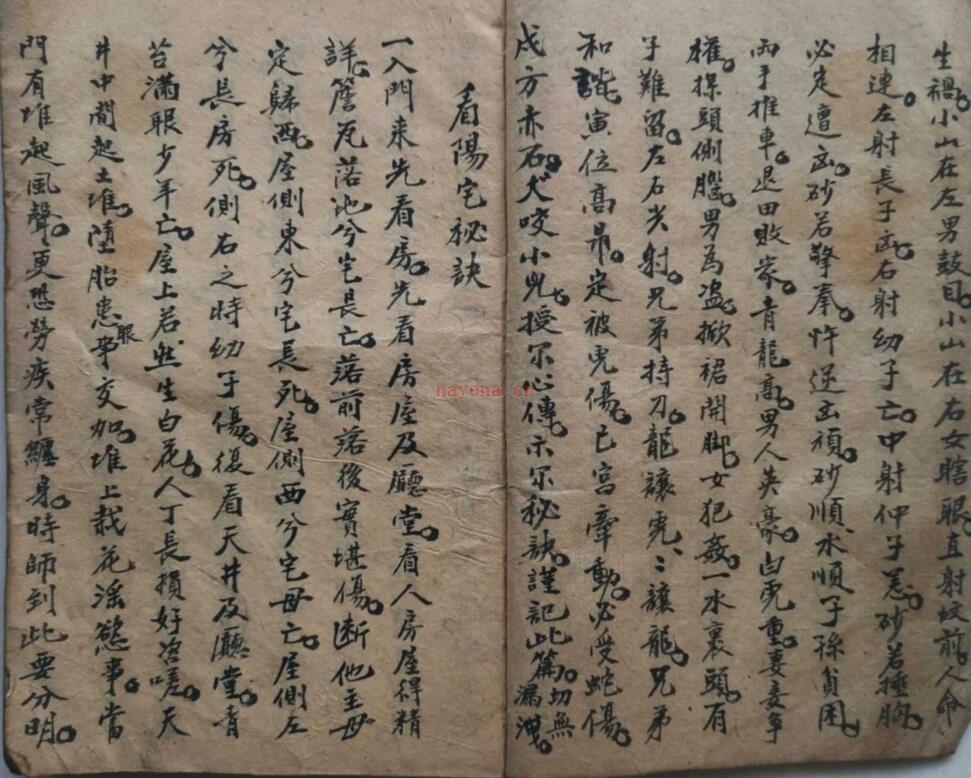 生禍。小山在左男鼓目。小山在右女瞎眼直射坟前。人命
相連。左射長子凶。右射幼子亡。中射仲子忌。砂若捶胸。
必定遭凶。砂若擎拳。忤逆凶頑。砂順、水順子孫貧困。
兩手推車。退田敗家。青龍高。男人英豪。白虎重。妻妾爭
權。探頭側腦。男為盗。掀裙開脚。女犯姦。一水裹頭。有
子難留。左右尖射。兄弟持刀。龍讓虎、虎讓龍。兄弟
和諧。寅位高昂。定被虎傷。巳宮牽動。必受蛇傷。
戌方赤石。犬咬小兒。授尔心傳。示尔秘訣。謹記此篇。切無漏洩。
看陽宅秘訣
一入門来先看房。先看房屋及廳堂。看人房屋得精
詳。簷瓦落地兮宅長亡。落前落後實堪傷。断他主母
定歸西。屋側東兮宅長死。屋側西兮宅母亡。屋側左
兮長房死。側右之時幼子傷。復看天井及廳堂。青
苔滿眼少年亡。屋上若然生白花。人丁長損好咨嗟。天
井中間起土堆。墮胎患眼爭交加。堆上栽花淫慾事。當
門有堆起風聲。更恐勞疾常纏身。時師到此要分明。
nayona.cn